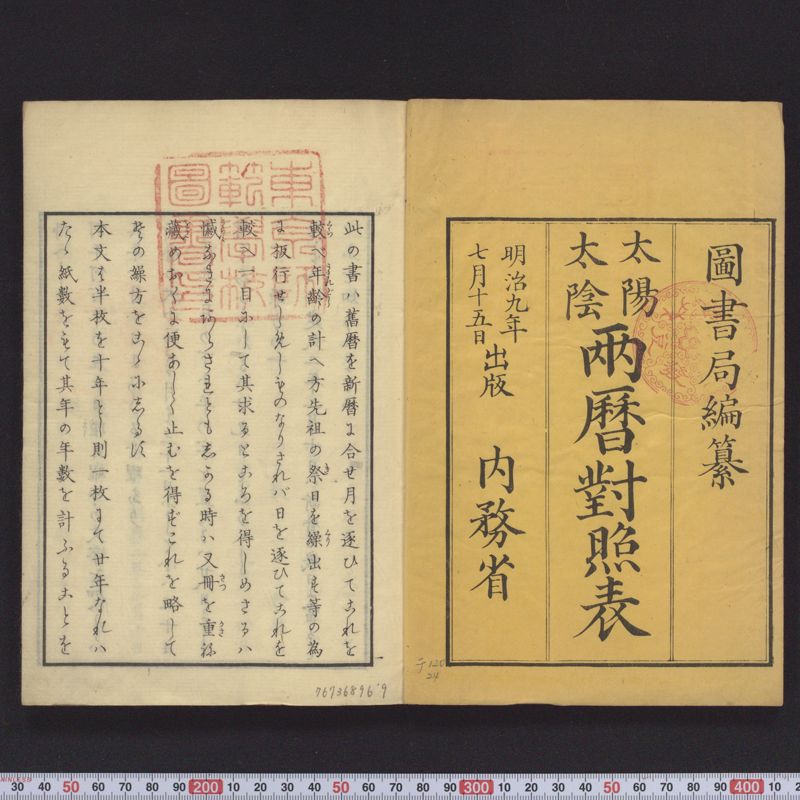 圖書局編纂
太陽
太陰
兩曆對照表
明治九年
七月十五日
出版
内務省
此の書ハ舊暦を新暦に合せ月を逐ひてこれを
較べ年齢の計へ方先祖の祭日を繰出す等の為
に板行せしめしものなりされバ日を逐ひてこれを
較べ一目にして其求るところを得しめさるハ
憾なきにあらされともしかする時ハ又冊を重ね
蔵めおくに便あしく止むを得ずこれを略して
其の繰方をこゝにしるす
本文は半枚を十年とし則一枚にて廿年なれハ
たゝ紙数をもて其年の年数を計ふることを
一
東京師
範學校
圖書印
76736896·9
120
24
30 40 50 60 70 80 90 200 10 20 30 40 50 60 70 80 90 300 10 20 30 40 50 60 70 80 90 400 10